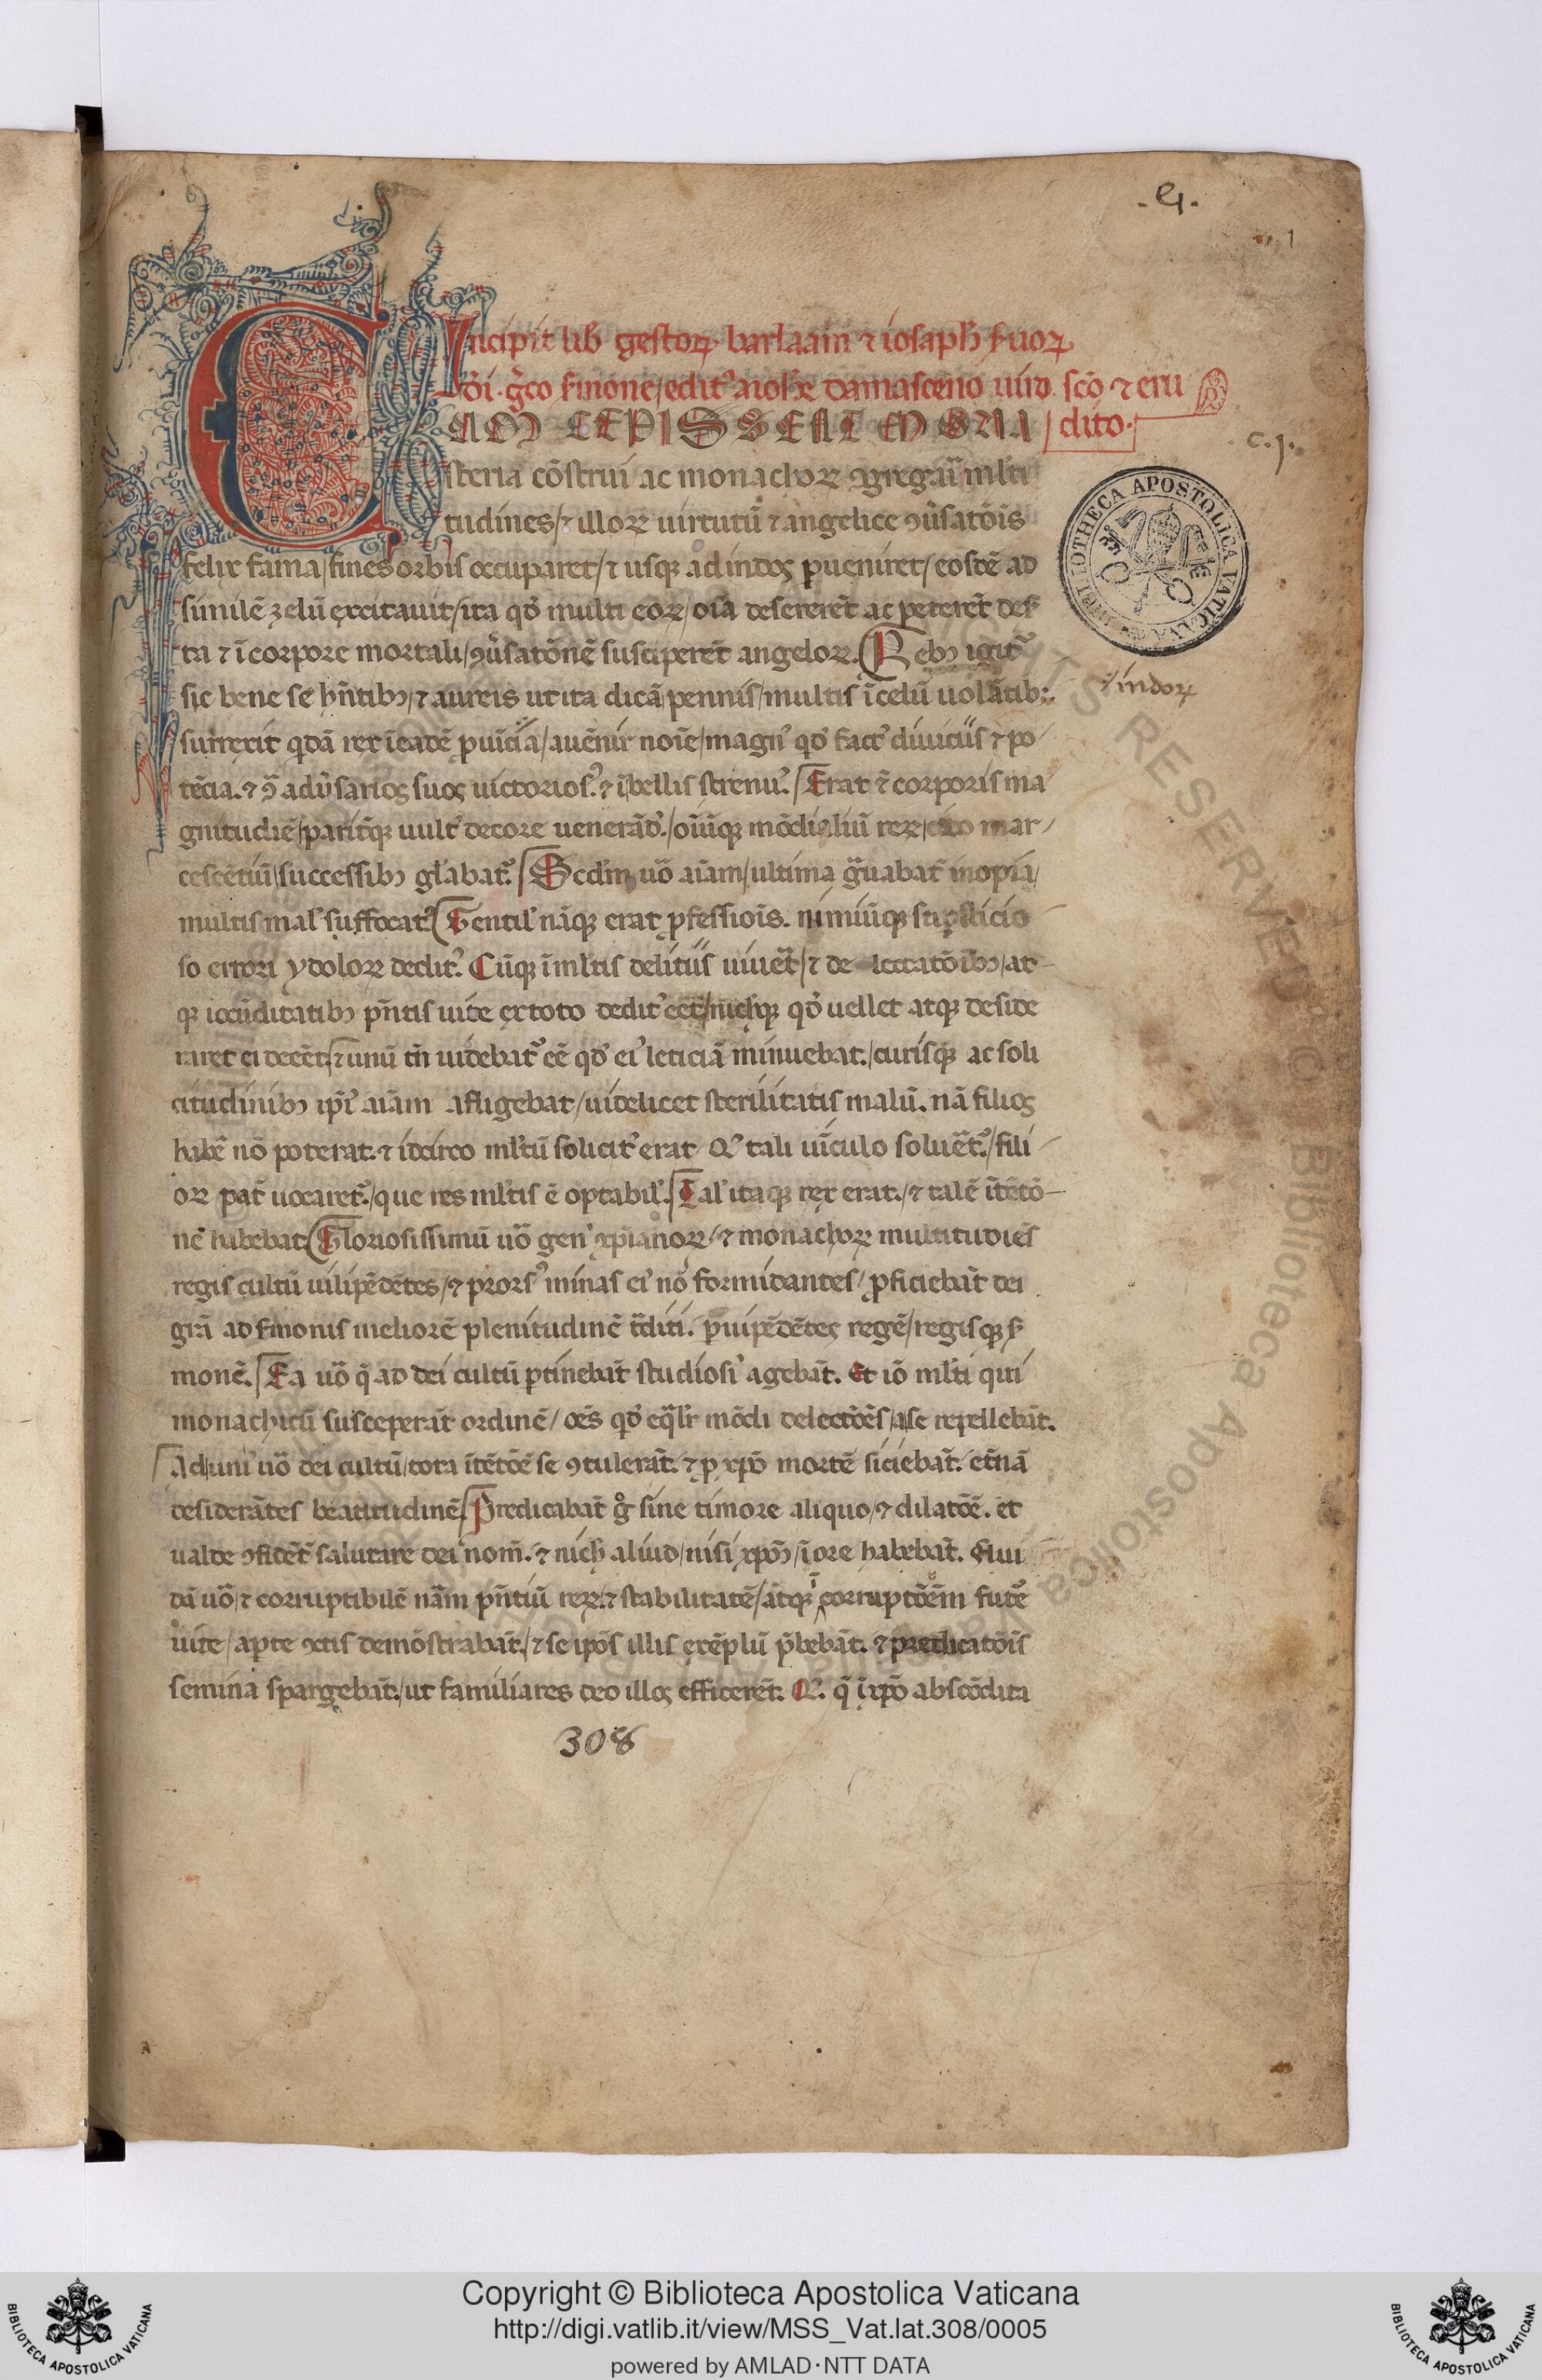 .G.
1
Incipit lib̄ gestoꝝ barlaam ⁊ iosaph ẜuoꝝ
dī. gͨco ẜmone/edit᾽ a ioħe damasceno uiro sc̄o ⁊ eru
dito.
CUM CEPISSENT MONA
c. j.
steria cōstrui ac monachoꝝ ꝯgregari ml̄ti
tudines/⁊ illoꝝ uirtutū ⁊ angelice ꝯu̓satōis
felix fama/fines orbis occuparet/⁊ usqꝫ ad indos ꝑueniret/eosdē ad
similē zelū excitauit/ita qd̓ multi eoꝝ/oīa desererēt ac peterēt deẜ
ta ⁊ ī corpore mortali/ꝯu̓satōnē susciperēt angeloꝝ. Rebꝫ igit᷑
⁊ indoꝝ
sic bene se hn̄tibꝫ/⁊ aureis ut ita dicā pennis/multis ī celū uolātibꝫ
surrexit qdā rex ī eadē ꝓuīcia/auēnir noīe/magn᾽ qd̓ fact᾽ diuiciis ⁊ po
tēcia. ⁊ ꝯ̄ adu̓sarios suos uictorios᾽. ⁊ ī bellis strenu᾽. Erat ⁊̄ corporis ma
gnitudīe/parit̄qꝫ uult᾽ decore uenerād᾽./oīuqꝫ mōdialiū reꝝ/cito mar
cescētiū/successibꝫ gl̓abat᷑. Scd̓m uō aīam/ultima gͣuabat᷑ inopia/
multis mal᾽ suffocat᾽. Gentil᾽ nāqꝫ erat ꝓfessiois. nimiūqꝫ supsticio
so errori ydoloꝝ dedit᾽. Cūqꝫ ī ml̓tis deliciis uiuēt/⁊ de lectatōībꝫ/at
qꝫ iocūditatibꝫ pn̄tis uite ex toto dedit᾽ eēt/nichqꝫ qd̓ uellet atqꝫ deside
raret ei deeēt/⁊ unū tn̄ uidebat᷑ eē qd̓ ei᾽ leticiā minuebat./curisqꝫ ac soli
citudinibꝫ ip̄i᾽ aīam affligebat/uidelicet sterilitatis malū. nā filios
habē nō poterat. ⁊ idcirco ml̓tū solicit᾽ erat qͥ tali uīculo soluēt᷑./fili
oꝝ pat̄ uocaret᷑./que res ml̓tis ē optabil᾽. Tal᾽ itaqꝫ rex erat./⁊ talē ītētō
nē habebat. Gloriosissimū uō gen᾽ xp̄ianoꝝ/⁊ monachoꝝ multitudīes
regis cultū uilipēdētes/⁊ prors᾽ minas ei᾽ nō formidantes/ꝓficiebāt dei
grā ad ẜmonis meliorē plenitudinē tͣditi. ꝑuipēdētes regē/regisqꝫ ẜ
monē. Ea uō q̄ ad dei cultū ꝑtinebāt studiosi᾽ agebāt. Et iō ml̓ti qui
monachicū susceperāt ordinē/oēs qd̓ eqͣlr̄ mōdi delectōes/a se repellebāt.
Ad uni᾽ uō dei cultū/tota ītētōē se ꝯtulerāt. ⁊ ꝓ xp̄o mortē siciebāt. et̄nā
desiderātes beatitudinē. Predicabāt gͦ sine timore aliquo/⁊ dilatōē. et
ualde ꝯfidēt᾽ salutare dei nom̄. ⁊ nich aliud/nisi xp̄m/ī ore habebāt. Flui
dā uō/⁊ corruptibilē nām pn̄tiū reꝝ. ⁊ stabilitatē/atqꝫ ī corruptōem fut᷑e
uite/aꝑte xtis demōstrabāt./⁊ se ip̄os illis exēplū p̄bebāt. ⁊ predicatōis
semina spargebāt./ut familiares deo illos efficerēt. ⁊. q̄ ī xp̄o abscōdita
308
BIBLIOTHECA APOSTOLICA VATICANA
Copyright © Biblioteca Apostolica Vaticana
http://digi.vatlib.it/view/MSS_Vat.lat.308/0005
powered by AMLAD·NTT DATA
BIBLIOTECA APOSTOLICA VATICANA
BIBLIOTECA APOSTOLICA VATICANA